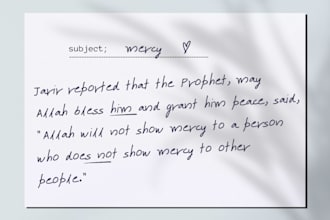 subject; mercy ♡
Jarir reported that the Prophet, may
Allah bless him and grant him peace, said,
"Allah will not show mercy to a person
who does not show mercy to other
people."